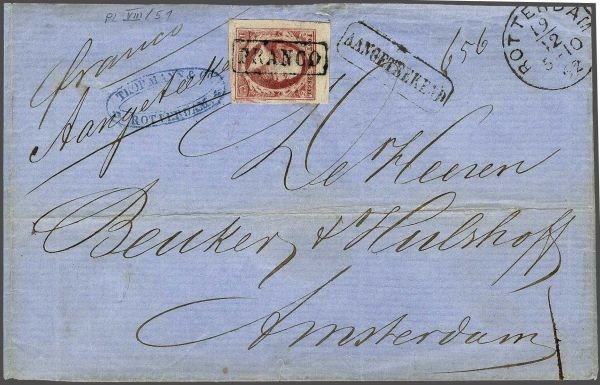 Pl VIII/51
Franco
Aangeteekend
FRANCO
AANGETEKEND
656
ROTTERDAM
19
12
10
52
ROTTERDAM
De Heeren
Beuker & Hulshoff
Amsterdam